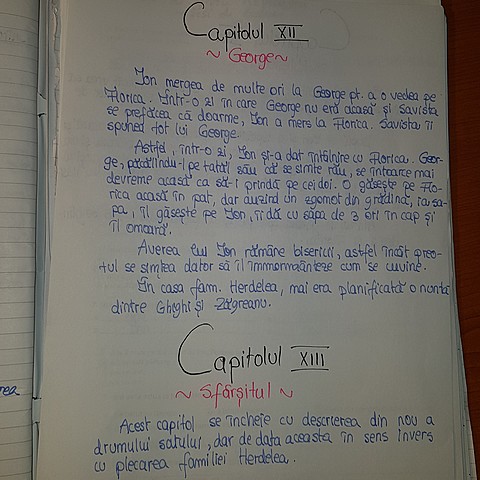 Capitolul XII
~ George ~
Ion mergea de multe ori la George pt. a o vedea pe
Florica. Într-o zi în care George nu era acasă și Savista
se prefăcea că doarme, Ion a mers la Florica. Savista îi
spuned tot lui George.
Astfel, într-o zi, Ion și-a dat întâlnire cu Florica. Geor-
ge, păcălindu-l pe tatăl său că se simte rău, se întoarce mai
devreme acasă ca să-i prindă pe cei doi. O găsește pe Flo-
rica acasă în pat, dar auzind un zgomot din grădină, ia sa-
pa, îl găsește pe Ion, îi dă cu sapa de 3 ori în cap și
îl omoară.
Averea lui Ion rămâne bisericii, astfel încât preo-
tul se simțea dator să îl immormânteze cum se cuvine.
În casa fam. Herdelea, mai era planificată o nuntă
dintre Ghighi și Zăgreanu.
Capitolul XIII
~ Sfârșitul ~
Acest capitol se încheie cu descrierea din nou a
drumului satului, dar de data aceasta în sens invers
cu plecarea familiei Herdelea.